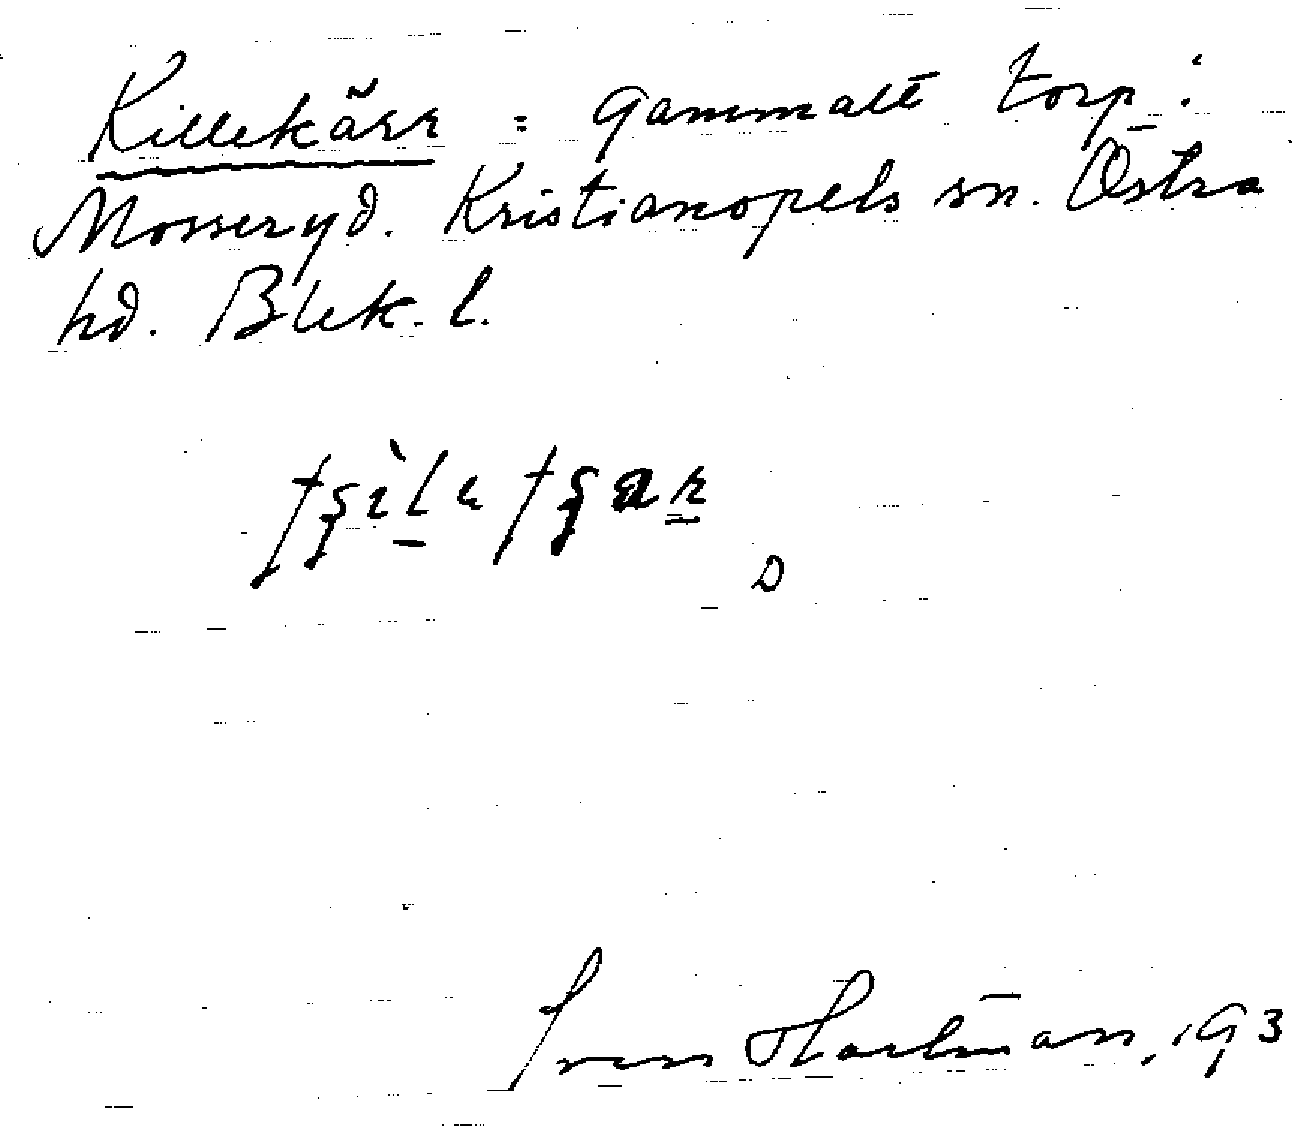 Killekärr = gammalt torp i
Mosseryd. Kristianopels sn. Östra
hd. Blek. l.
D
Sven Hartman, 193